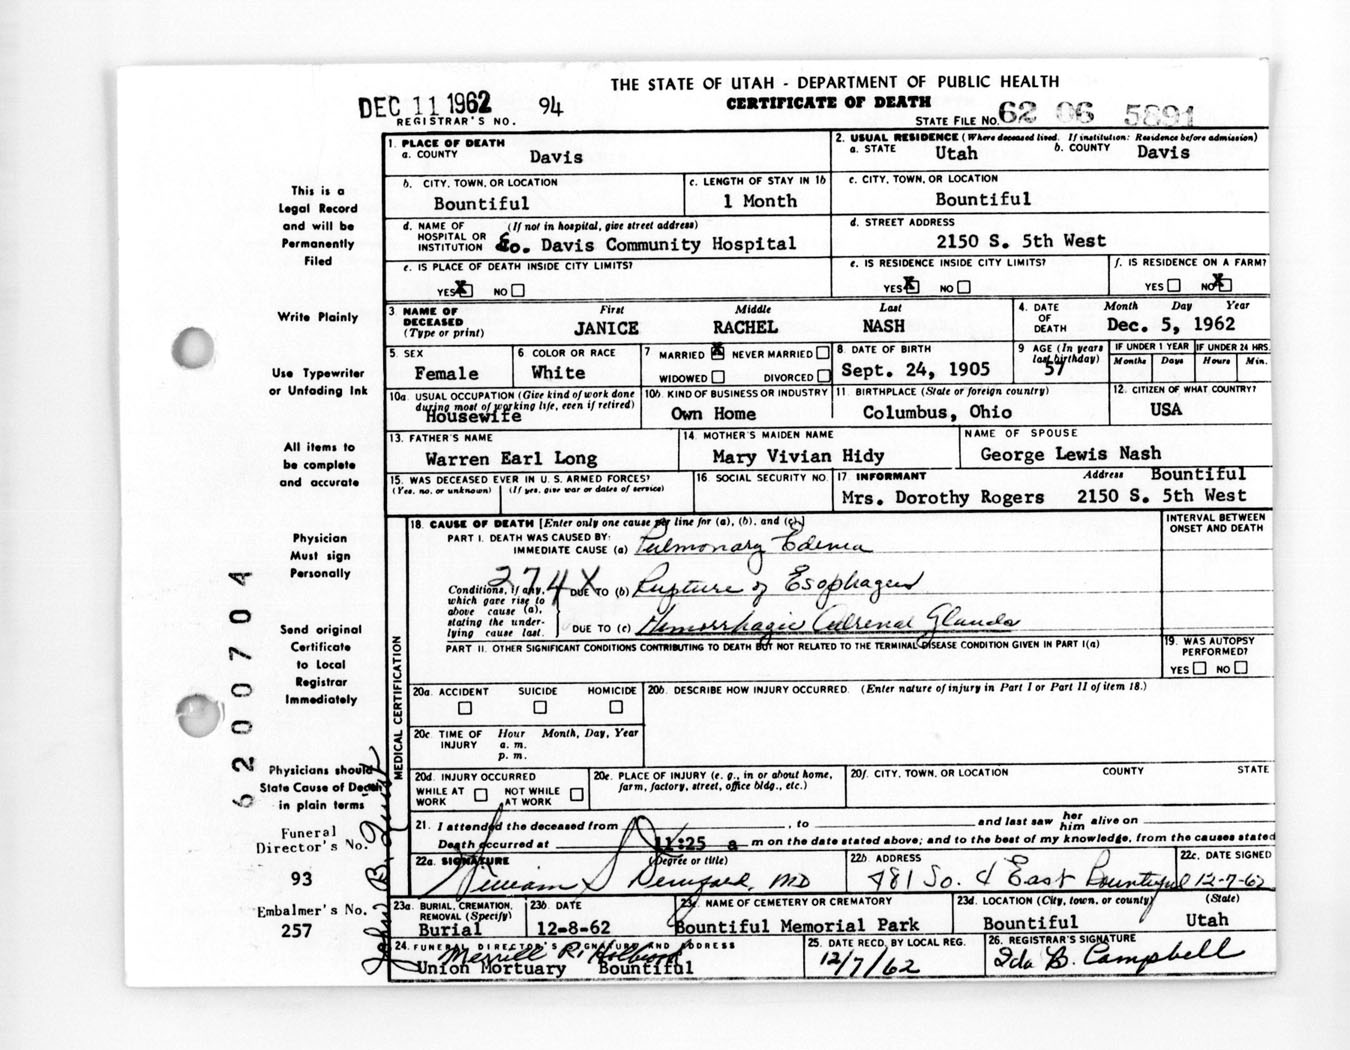 THE STATE OF UTAH - DEPARTMENT OF PUBLIC HEALTH
DEC 11 1962 94 CERTIFICATE OF DEATH
REGISTRAR'S NO. STATE FILE NO. 62 06 5891
1. PLACE OF DEATH 2. USUAL RESIDENCE (Where deceased lived. If institution: Residence before admission)
a. COUNTY Davis a. STATE Utah b. COUNTY Davis
b. CITY, TOWN, OR LOCATION c. LENGTH OF STAY IN 1b c. CITY, TOWN, OR LOCATION
Bountiful 1 Month Bountiful
d. NAME OF HOSPITAL OR INSTITUTION (If not in hospital, give street address) d. STREET ADDRESS
So. Davis Community Hospital 2150 S. 5th West
e. IS PLACE OF DEATH INSIDE CITY LIMITS? e. IS RESIDENCE INSIDE CITY LIMITS? f. IS RESIDENCE ON A FARM?
YES X NO YES X NO YES NO X
3. NAME OF DECEASED (Type or print) First Middle Last 4. DATE OF DEATH Month Day Year
JANICE RACHEL NASH Dec. 5, 1962
5. SEX 6. COLOR OR RACE 7. MARRIED X NEVER MARRIED 8. DATE OF BIRTH 9. AGE (In years last birthday) IF UNDER 1 YEAR IF UNDER 24 HRS.
Months Days Hours Min.
Female White WIDOWED DIVORCED Sept. 24, 1905 57
10a. USUAL OCCUPATION (Give kind of work done during most of working life, even if retired) 10b. KIND OF BUSINESS OR INDUSTRY 11. BIRTHPLACE (State or foreign country) 12. CITIZEN OF WHAT COUNTRY?
Housewife Own Home Columbus, Ohio USA
13. FATHER'S NAME 14. MOTHER'S MAIDEN NAME NAME OF SPOUSE
Warren Earl Long Mary Vivian Hidy George Lewis Nash
15. WAS DECEASED EVER IN U.S. ARMED FORCES? 16. SOCIAL SECURITY NO. 17. INFORMANT Address Bountiful
(Yes, no, or unknown) (If yes, give war or dates of service) Mrs. Dorothy Rogers 2150 S. 5th West
MEDICAL CERTIFICATION
18. CAUSE OF DEATH [Enter only one cause per line for (a), (b), and (c)] INTERVAL BETWEEN ONSET AND DEATH
PART I. DEATH WAS CAUSED BY:
IMMEDIATE CAUSE (a) Pulmonary Edema
274X
Conditions, if any, which gave rise to above cause (a), stating the underlying cause last.
DUE TO (b) Rupture of Esophagus
DUE TO (c) Hemorrhagic Adrenal Glands
PART II. OTHER SIGNIFICANT CONDITIONS CONTRIBUTING TO DEATH BUT NOT RELATED TO THE TERMINAL DISEASE CONDITION GIVEN IN PART I(a) 19. WAS AUTOPSY PERFORMED?
YES NO
20a. ACCIDENT SUICIDE HOMICIDE 20b. DESCRIBE HOW INJURY OCCURRED. (Enter nature of injury in Part I or Part II of item 18.)
20c. TIME OF INJURY Hour Month, Day, Year
a. m.
p. m.
20d. INJURY OCCURRED 20e. PLACE OF INJURY (e. g., in or about home, farm, factory, street, office bldg., etc.) 20f. CITY, TOWN, OR LOCATION COUNTY STATE
WHILE AT WORK NOT WHILE AT WORK
21. I attended the deceased from , to and last saw her him alive on
Death occurred at 11:25 a m on the date stated above; and to the best of my knowledge, from the causes stated
22a. SIGNATURE (Degree or title) 22b. ADDRESS 22c. DATE SIGNED
William S MD 481 So. 4 East Bountiful 12-7-62
23a. BURIAL, CREMATION, REMOVAL (Specify) 23b. DATE 23c. NAME OF CEMETERY OR CREMATORY 23d. LOCATION (City, town, or county) (State)
Burial 12-8-62 Bountiful Memorial Park Bountiful Utah
24. FUNERAL DIRECTOR'S SIGNATURE AND ADDRESS 25. DATE RECD. BY LOCAL REG. 26. REGISTRAR'S SIGNATURE
Merrill R. Holbrook
Union Mortuary Bountiful 12/7/62 Ida B. Campbell
This is a
Legal Record
and will be
Permanently
Filed
Write Plainly
Use Typewriter
or Unfading Ink
All items to
be complete
and accurate
Physician
Must sign
Personally
Send original
Certificate
to Local
Registrar
Immediately
Physicians should
State Cause of Death
in plain terms
Funeral
Director's No.
93
Embalmer's No.
257
6200704
John B.